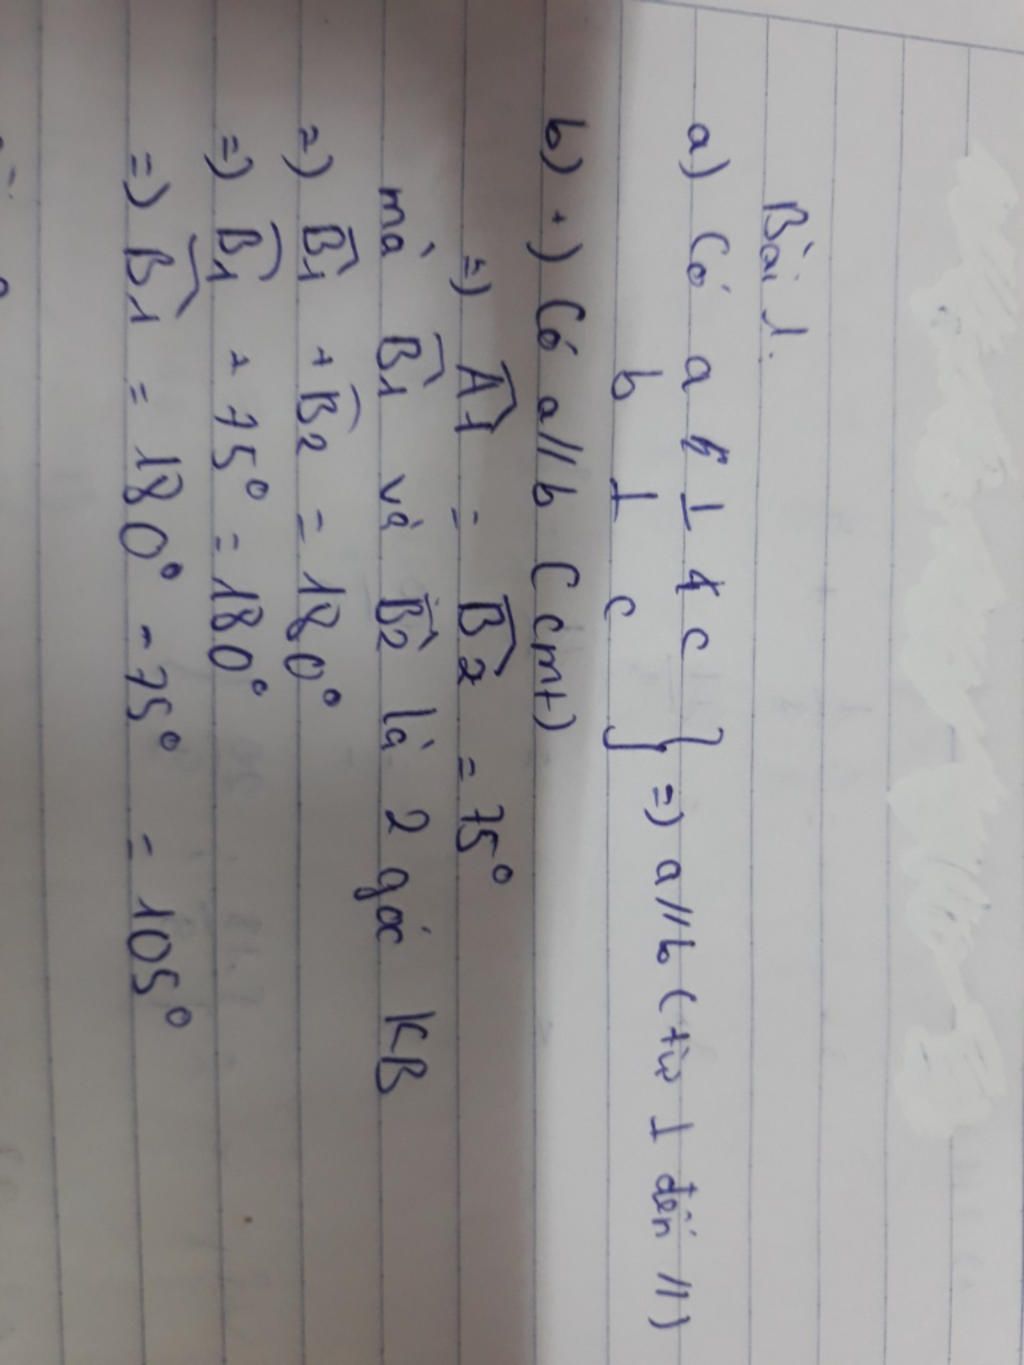 Bài 1.
a) Có a ⊥ c
b ⊥ c } => a // b (từ ⊥ đến //)
b) +) Có a // b (cmt)
=> Â1 = B̂2 = 75°
mà B̂1 và B̂2 là 2 góc KB
=) B̂1 + B̂2 = 180°
=) B̂1 + 75° = 180°
=) B̂1 = 180° - 75° = 105°